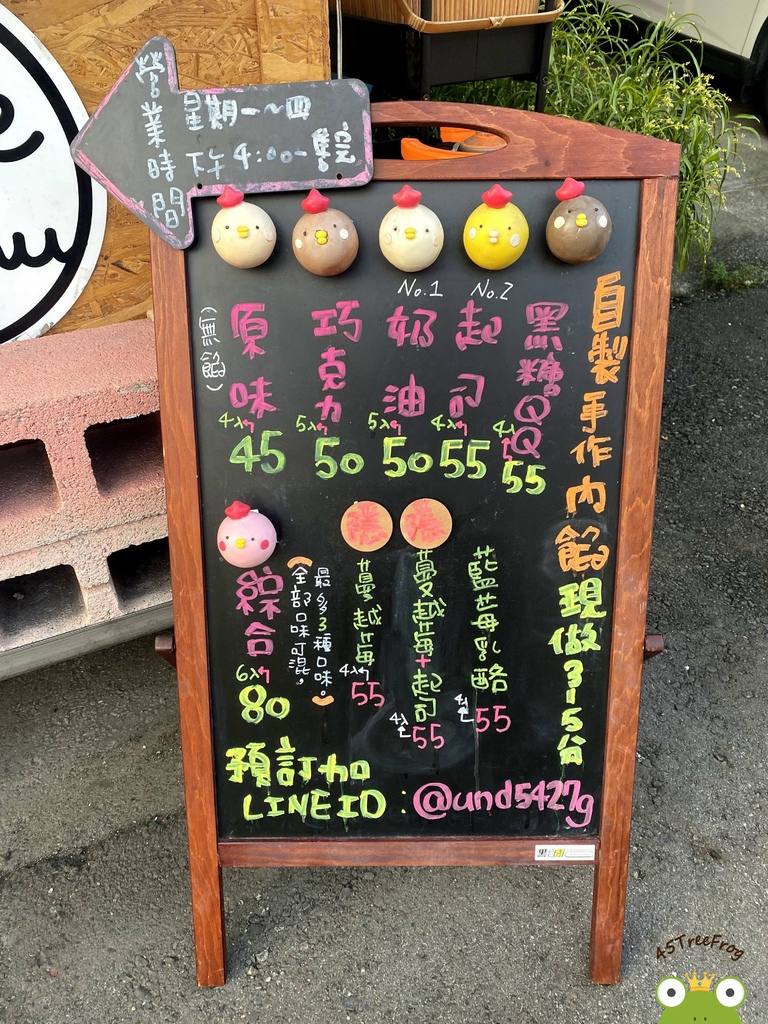 營業時間
星期一~四
下午 4:00-售完
自製手作內餡現做3-5分
黑糖QQ
4入
55
No.2
起司
4入
55
No.1
奶油
5入
50
巧克力
5入
50
原味
(無餡)
4入
45
藍莓乳酪
4入
55
蔓越莓+起司
4入
55
蔓越莓
4入
55
綜合
(最多3種口味。
全部口味可混,)
6入
80
預訂加
LINE ID:@und5427g
45TreeFrog